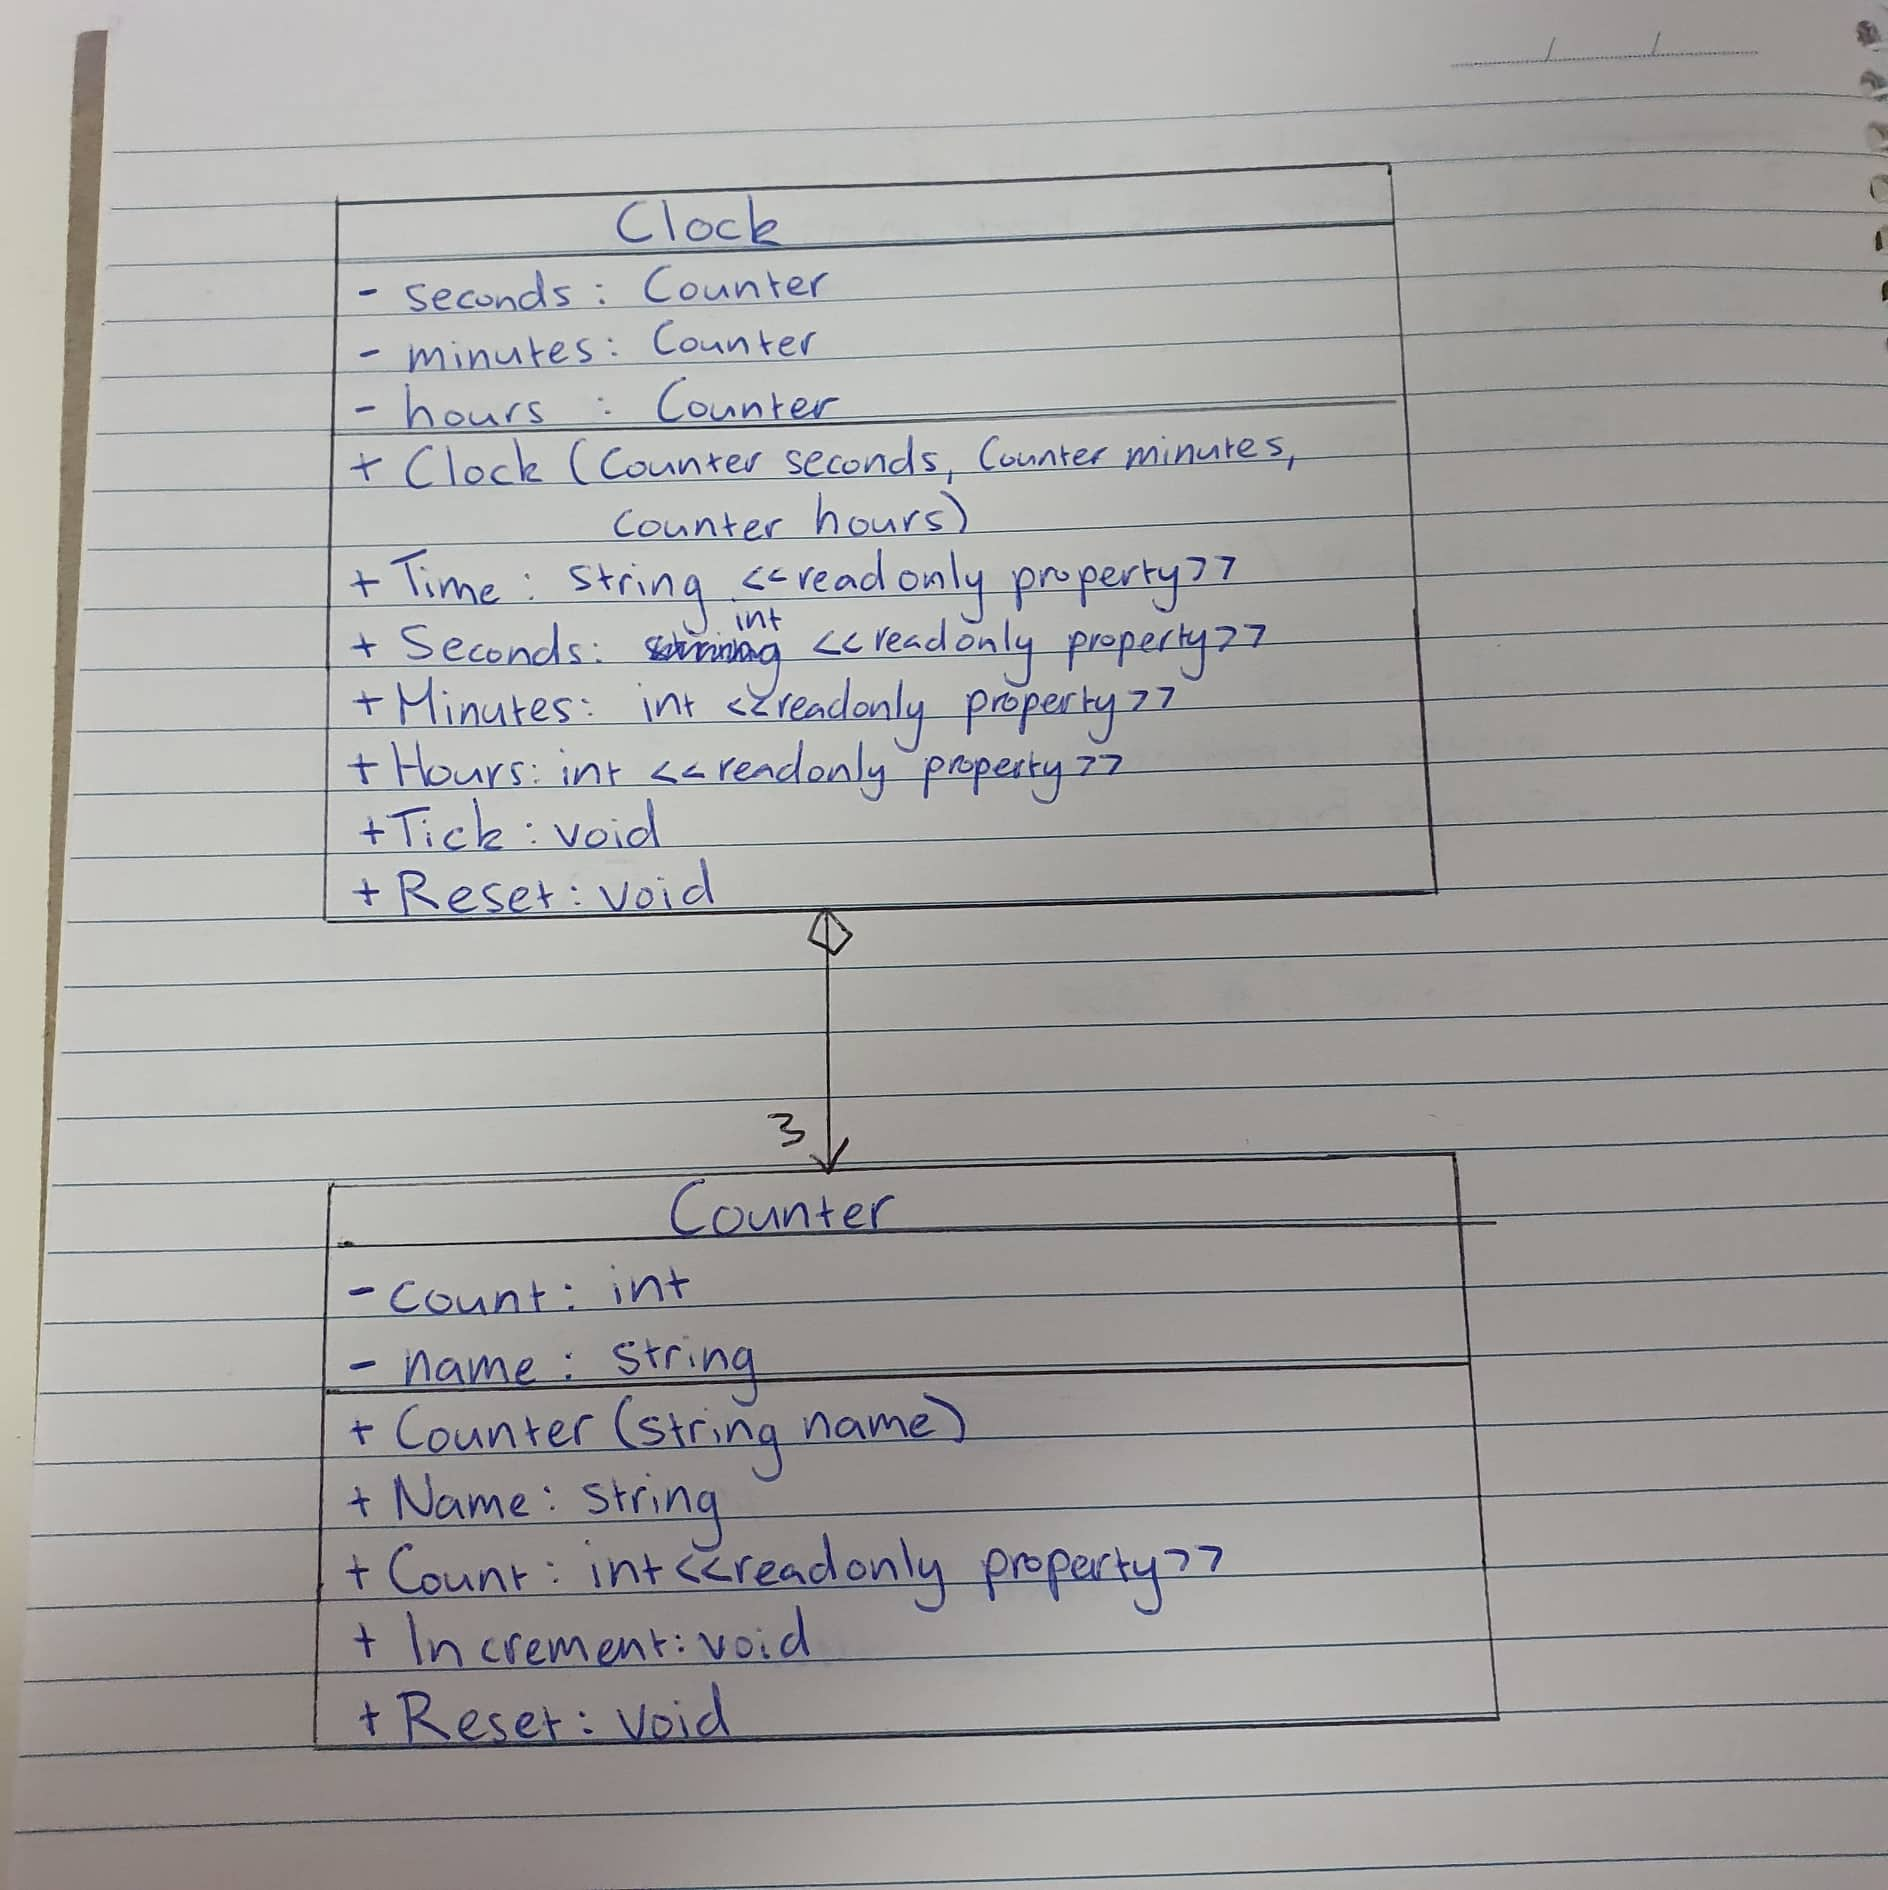 Clock
- seconds: Counter
- minutes: Counter
- hours : Counter
+ Clock (Counter seconds, Counter minutes,
Counter hours)
+ Time: string <<readonly property>>
int
+ Seconds: <<readonly property>>
+ Minutes: int <<readonly property>>
+ Hours: int <<readonly property>>
+ Tick: void
+ Reset: void
3
Counter
- count: int
- name: string
+ Counter (string name)
+ Name: string
+ Count: int <<readonly property>>
+ Increment: void
+ Reset: void